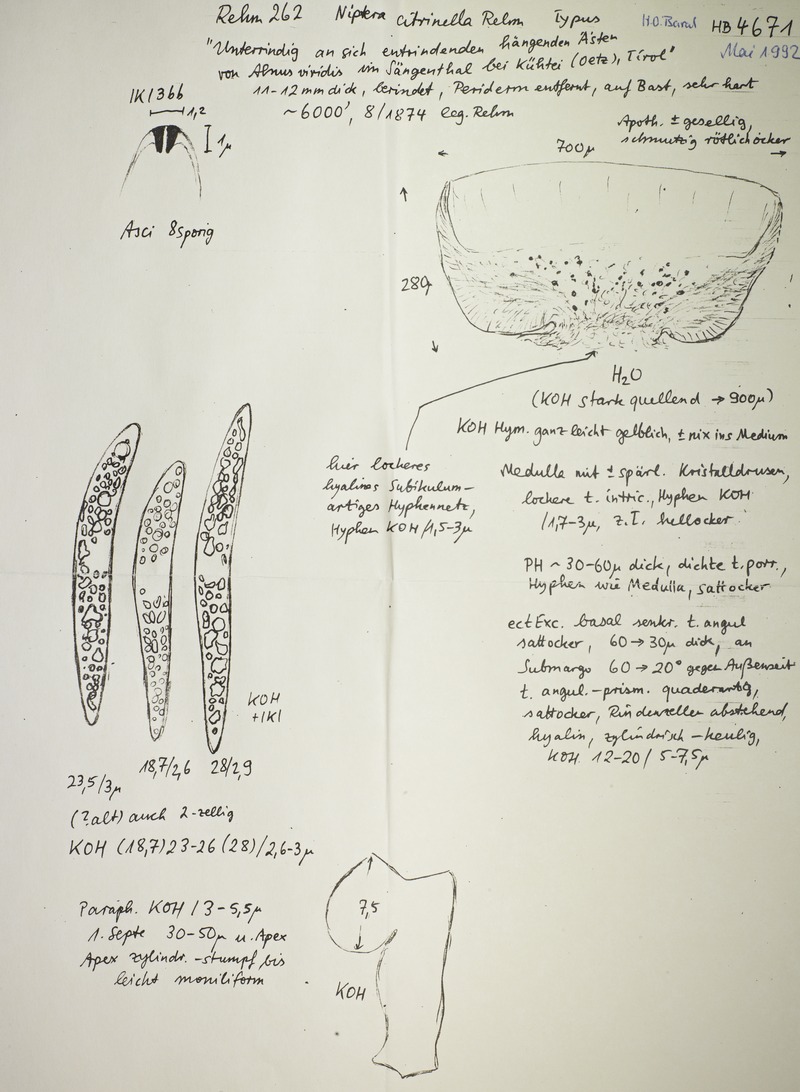 Rehm 262 Niptera citrinella Rehm Typus H.O. Baral HB 4671
Mai 1992
"Unterrindig an sich entrindenden hängenden Ästen
von Alnus viridis im Längenthal bei Kühtei (Oetz), Tirol"
11-12 mm dick, berindet, Periderm entfernt, auf Bast, sehr hart
~6000', 8/1874 leg. Rehm
IKI 366
1,2
1µ
Asci 8sporig
Apoth. ± gesellig,
schmutzig rötlichocker
700µ
280µ
H2O
(KOH stark quellend → 900µ)
KOH Hym. ganz leicht gelblich, ± nix ins Medium
hier lockeres
hyalines Subikulum-
artiges Hyphennetz,
Hyphen KOH /1,5-3µ
Medulla mit ± spärl. Kristalldrusen,
lockere t. intric., Hyphen KOH
/1,7-3µ, z.T. hellocker
PH ~ 30-60µ dick, dichte t. porr.,
Hyphen wie Medulla, sattocker
ectExc. basal senkr. t. angul
sattocker, 60→30µ dick, an
Submargo 60→20° gegen Außenseit
t. angul.-prism. quaderartig,
sattocker, Rindenzellen abstehend,
hyalin, zylindrisch-keulig,
KOH 12-20/5-7,5µ
KOH
+IKI
23,5/3µ
18,7/2,6
28/2,9
(?alt) auch 2-zellig
KOH (18,7)23-26(28)/2,6-3µ
Paraph. KOH /3-5,5µ
1. Septe 30-50µ u. Apex
Apex zylindr.-stumpf bis
leicht moniliform
7,5
KOH